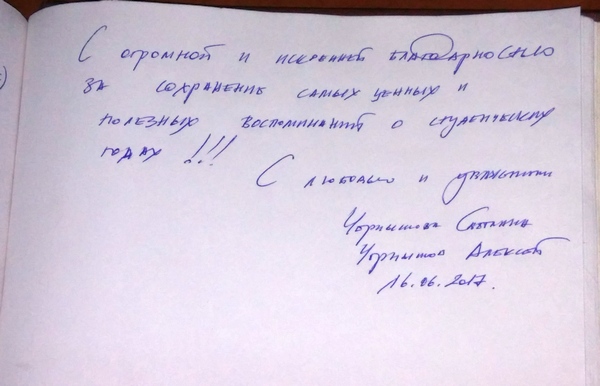 С огромной и искренней благодарностью
за сохранение самых ценных и
полезных воспоминаний о студенческих
годах !!!
С любовью и уважением
Чорнышова Светлана
Чорнышов Алексей
16.06.2017.